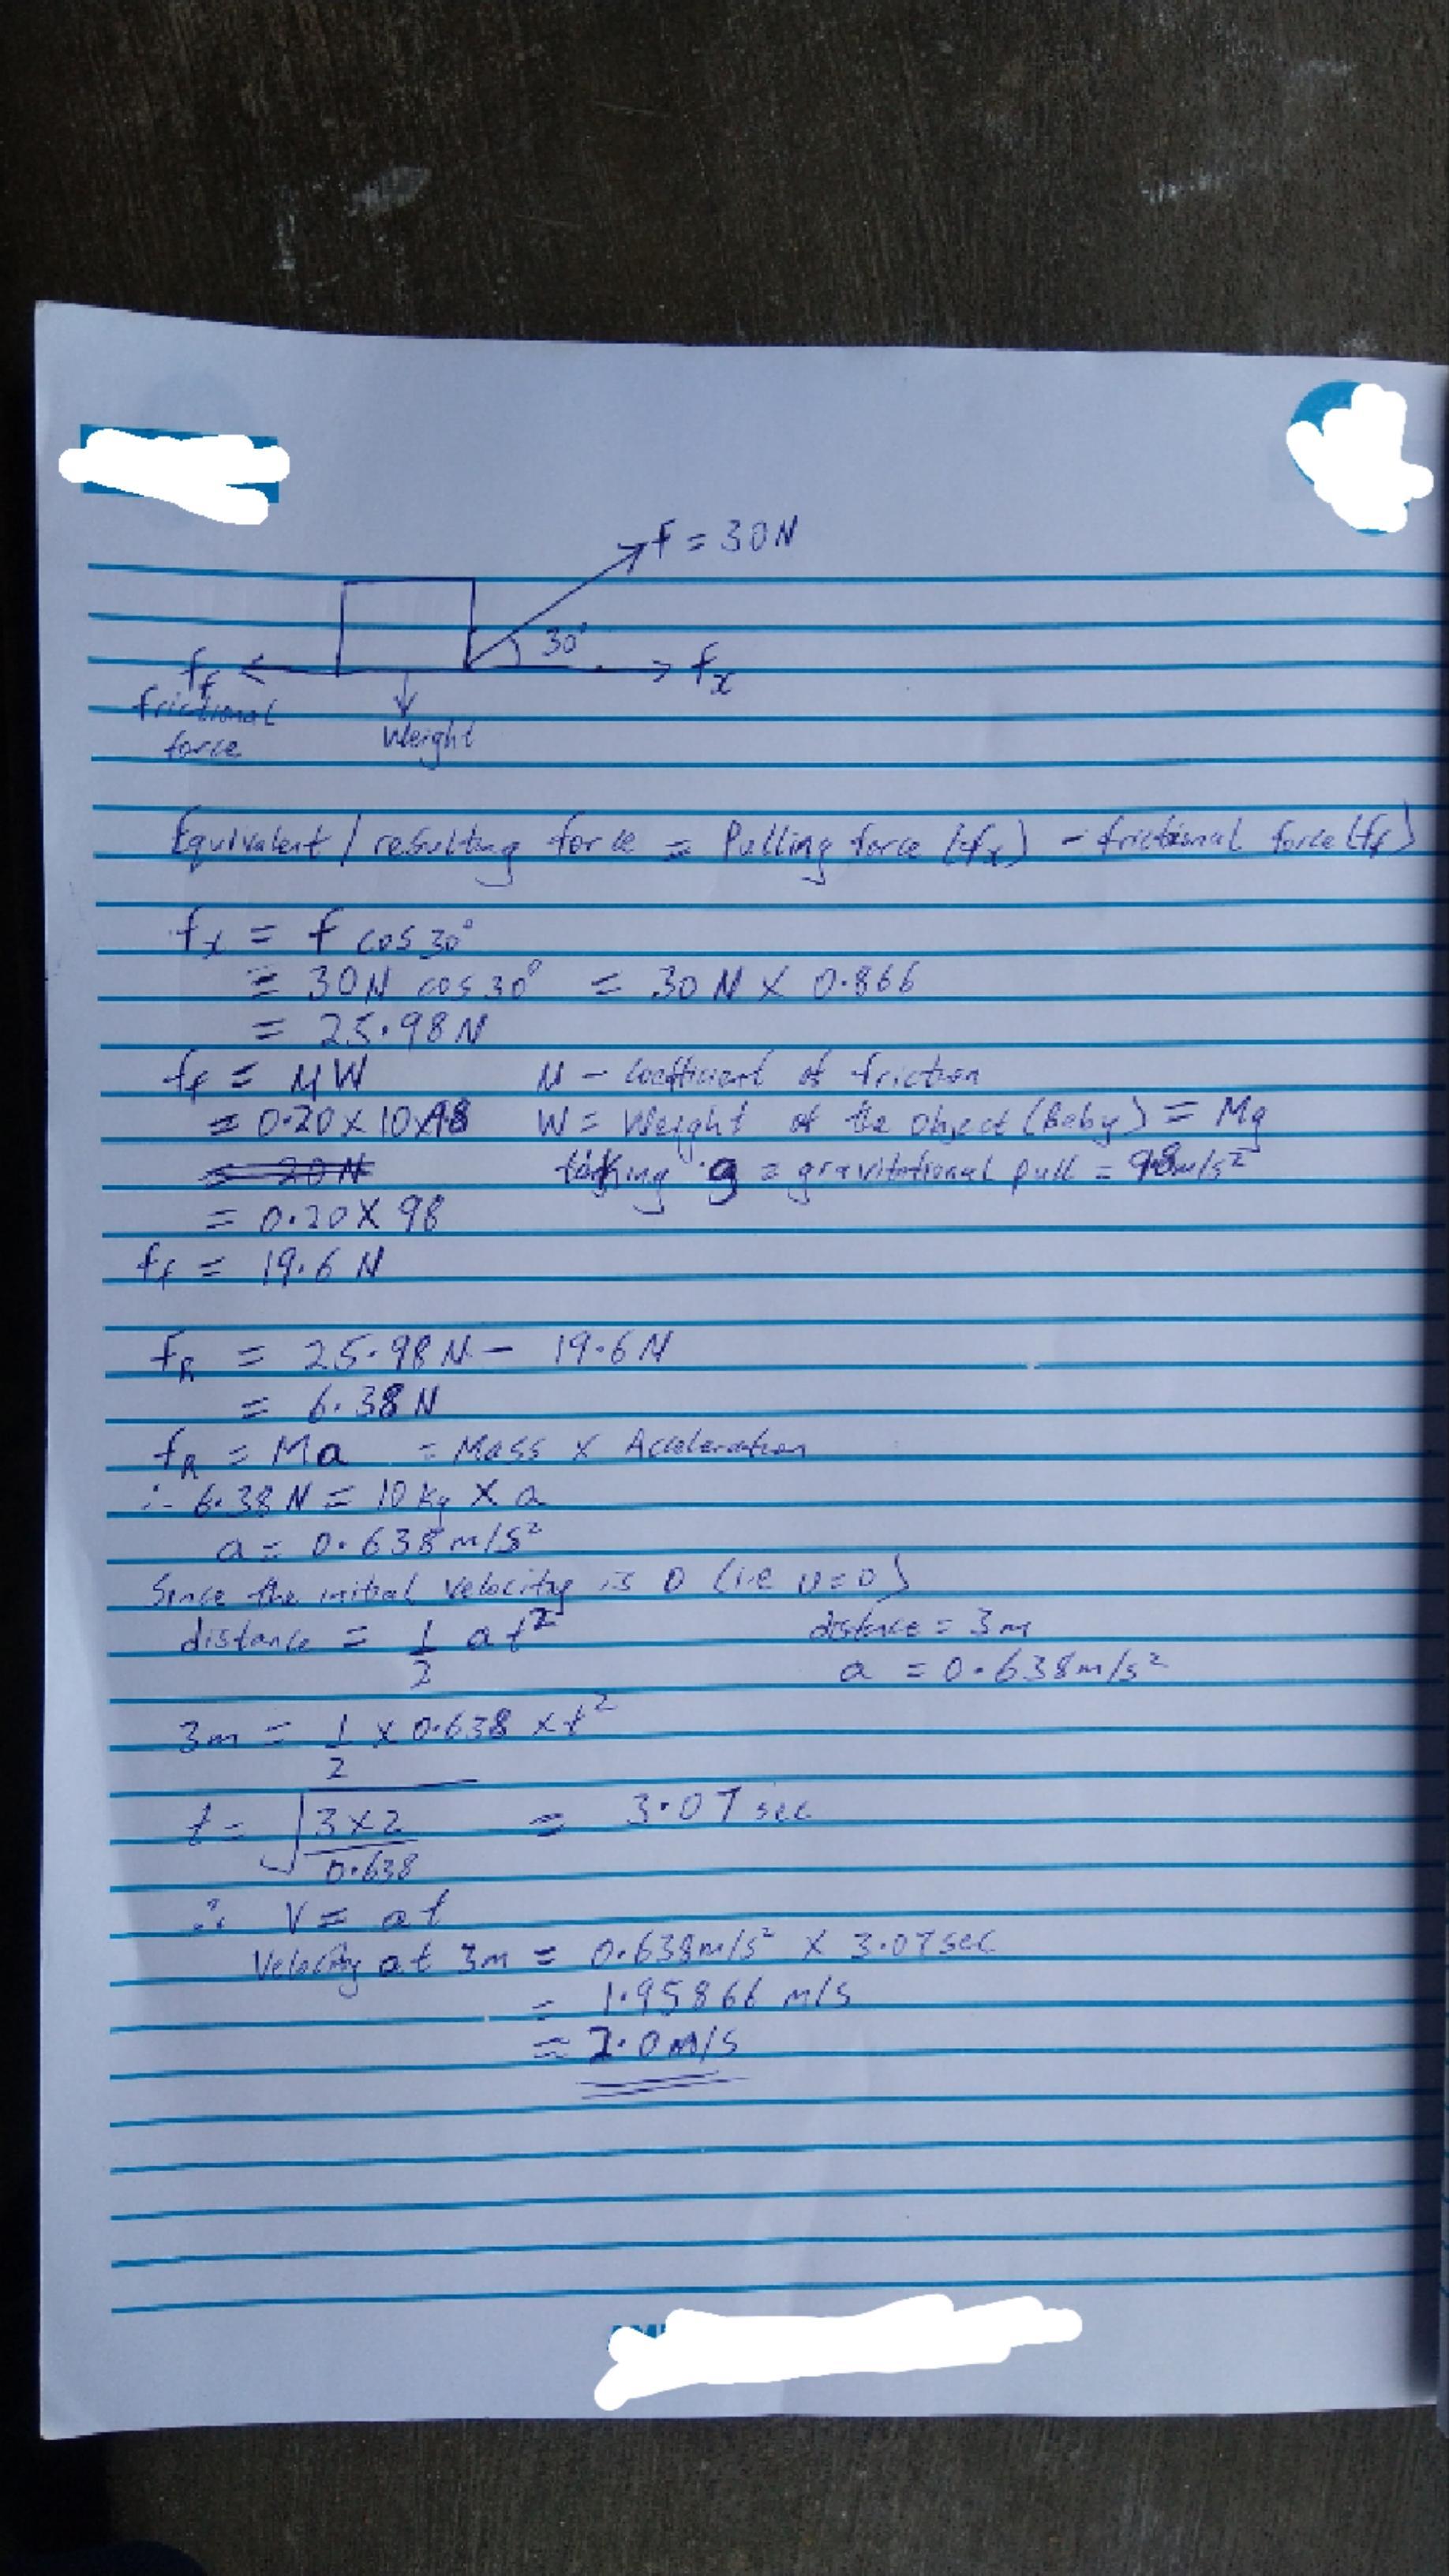 f = 30N
30°
ff
fx
frictional
force
Weight
Equivalent / resulting force = Pulling force (fx) - frictional force (ff)
fx = f cos 30°
= 30N cos 30° = 30 N × 0.866
= 25.98N
ff = MW M - Coefficient of friction
= 0.20 × 10 × 9.8 W = Weight of the object (Baby) = Mg
= 20N taking g = gravitational pull = 9.8m/s²
= 0.20 × 98
ff = 19.6 N
fR = 25.98 N - 19.6 N
= 6.38 N
fR = Ma = Mass × Acceleration
∴ 6.38 N = 10 kg × a
a = 0.638 m/s²
Since the initial velocity is 0 (i.e u=0)
distance = 1/2 at² distance = 3m
a = 0.638m/s²
3m = 1/2 × 0.638 × t²
t = √3×2/0.638 = 3.07 sec
∴ V = at
Velocity at 3m = 0.638m/s² × 3.07sec
= 1.95866 m/s
= 2.0 m/s